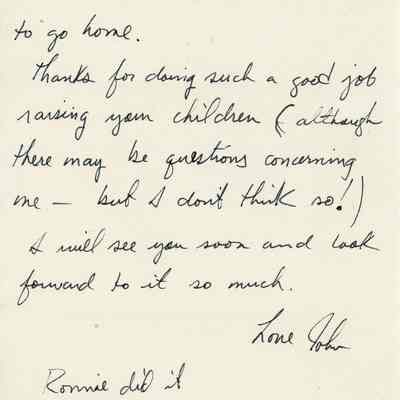 to go home.
Thanks for doing such a good job
raising your children (although
there may be questions concerning
me — but I don't think so!)
I will see you soon and look
forward to it so much.
Love John
Ronnie did it